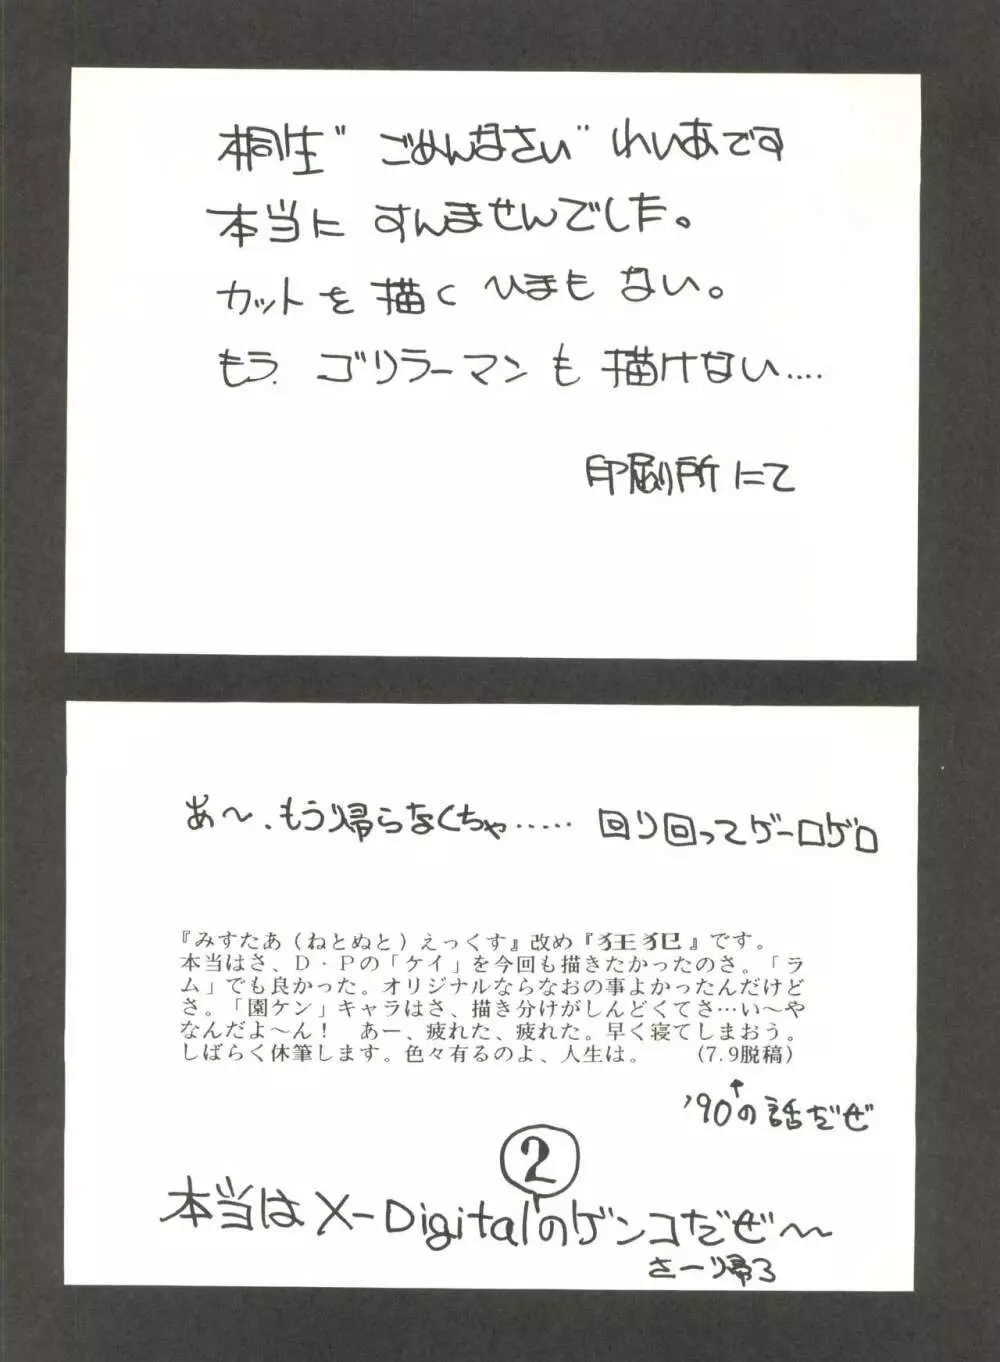 桐生"ごめんなさい"れいあです
本当に すんませんでした。
カットを描く ひまも ない。
もう. ゴリラーマンも 描けない....
印刷所にて
あ〜、もう帰らなくちゃ..... 回り回ってゲーロゲロ
『みすたあ（ねとぬと）えっくす』改め『狂犯』です。
本当はさ、D・Pの「ケイ」を今回も描きたかったのさ。「ラ
ム」でも良かった。オリジナルならなおの事よかったんだけど
さ。「園ケン」キャラはさ、描き分けがしんどくてさ…い〜や
なんだよ〜ん！　あー、疲れた、疲れた。早く寝てしまおう。
しばらく休筆します。色々有るのよ、人生は。　　(7.9脱稿)
↑
'90の話だぜ
2
本当は X-Digitalのゲンコだぜ〜
さーり帰ろ